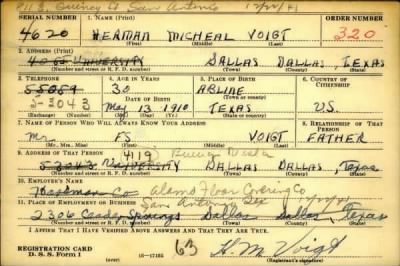 711 E. Quincy St San Antonio 12/22/41
SERIAL NUMBER 1. NAME (Print) ORDER NUMBER
4620 HERMAN MICHEAL VOIGT 320
(First) (Middle) (Last)
2. ADDRESS (Print)
UNIVERSITY DALLAS DALLAS, TEXAS
(Number and street or R. F. D. number) (Town) (County) (State)
3. TELEPHONE 4. AGE IN YEARS 5. PLACE OF BIRTH 6. COUNTRY OF CITIZENSHIP
55089 30 ABLINE
3-3043 DATE OF BIRTH (Town or county)
MAY 13, 1910 TEXAS U.S.
(Exchange) (Number) (Mo.) (Day) (Yr.) (State or country)
7. NAME OF PERSON WHO WILL ALWAYS KNOW YOUR ADDRESS 8. RELATIONSHIP OF THAT PERSON
Mr. FS VOIGT FATHER
(Mr., Mrs., Miss) (First) (Middle) (Last)
9. ADDRESS OF THAT PERSON (419)
UNIVERSITY DALLAS DALLAS, Texas
(Number and street or R. F. D. number) (Town) (County) (State)
10. EMPLOYER'S NAME
Co Alamo Floor Covering Co
11. PLACE OF EMPLOYMENT OR BUSINESS San Antonio Tex
2306 Ceader Springs Dallas Dallas, Texas
(Number and street or R. F. D. number) (Town) (County) (State)
I AFFIRM THAT I HAVE VERIFIED ABOVE ANSWERS AND THAT THEY ARE TRUE.
REGISTRATION CARD
D. S. S. Form 1 63 H. M. Voigt
(over) (Registrant's signature)